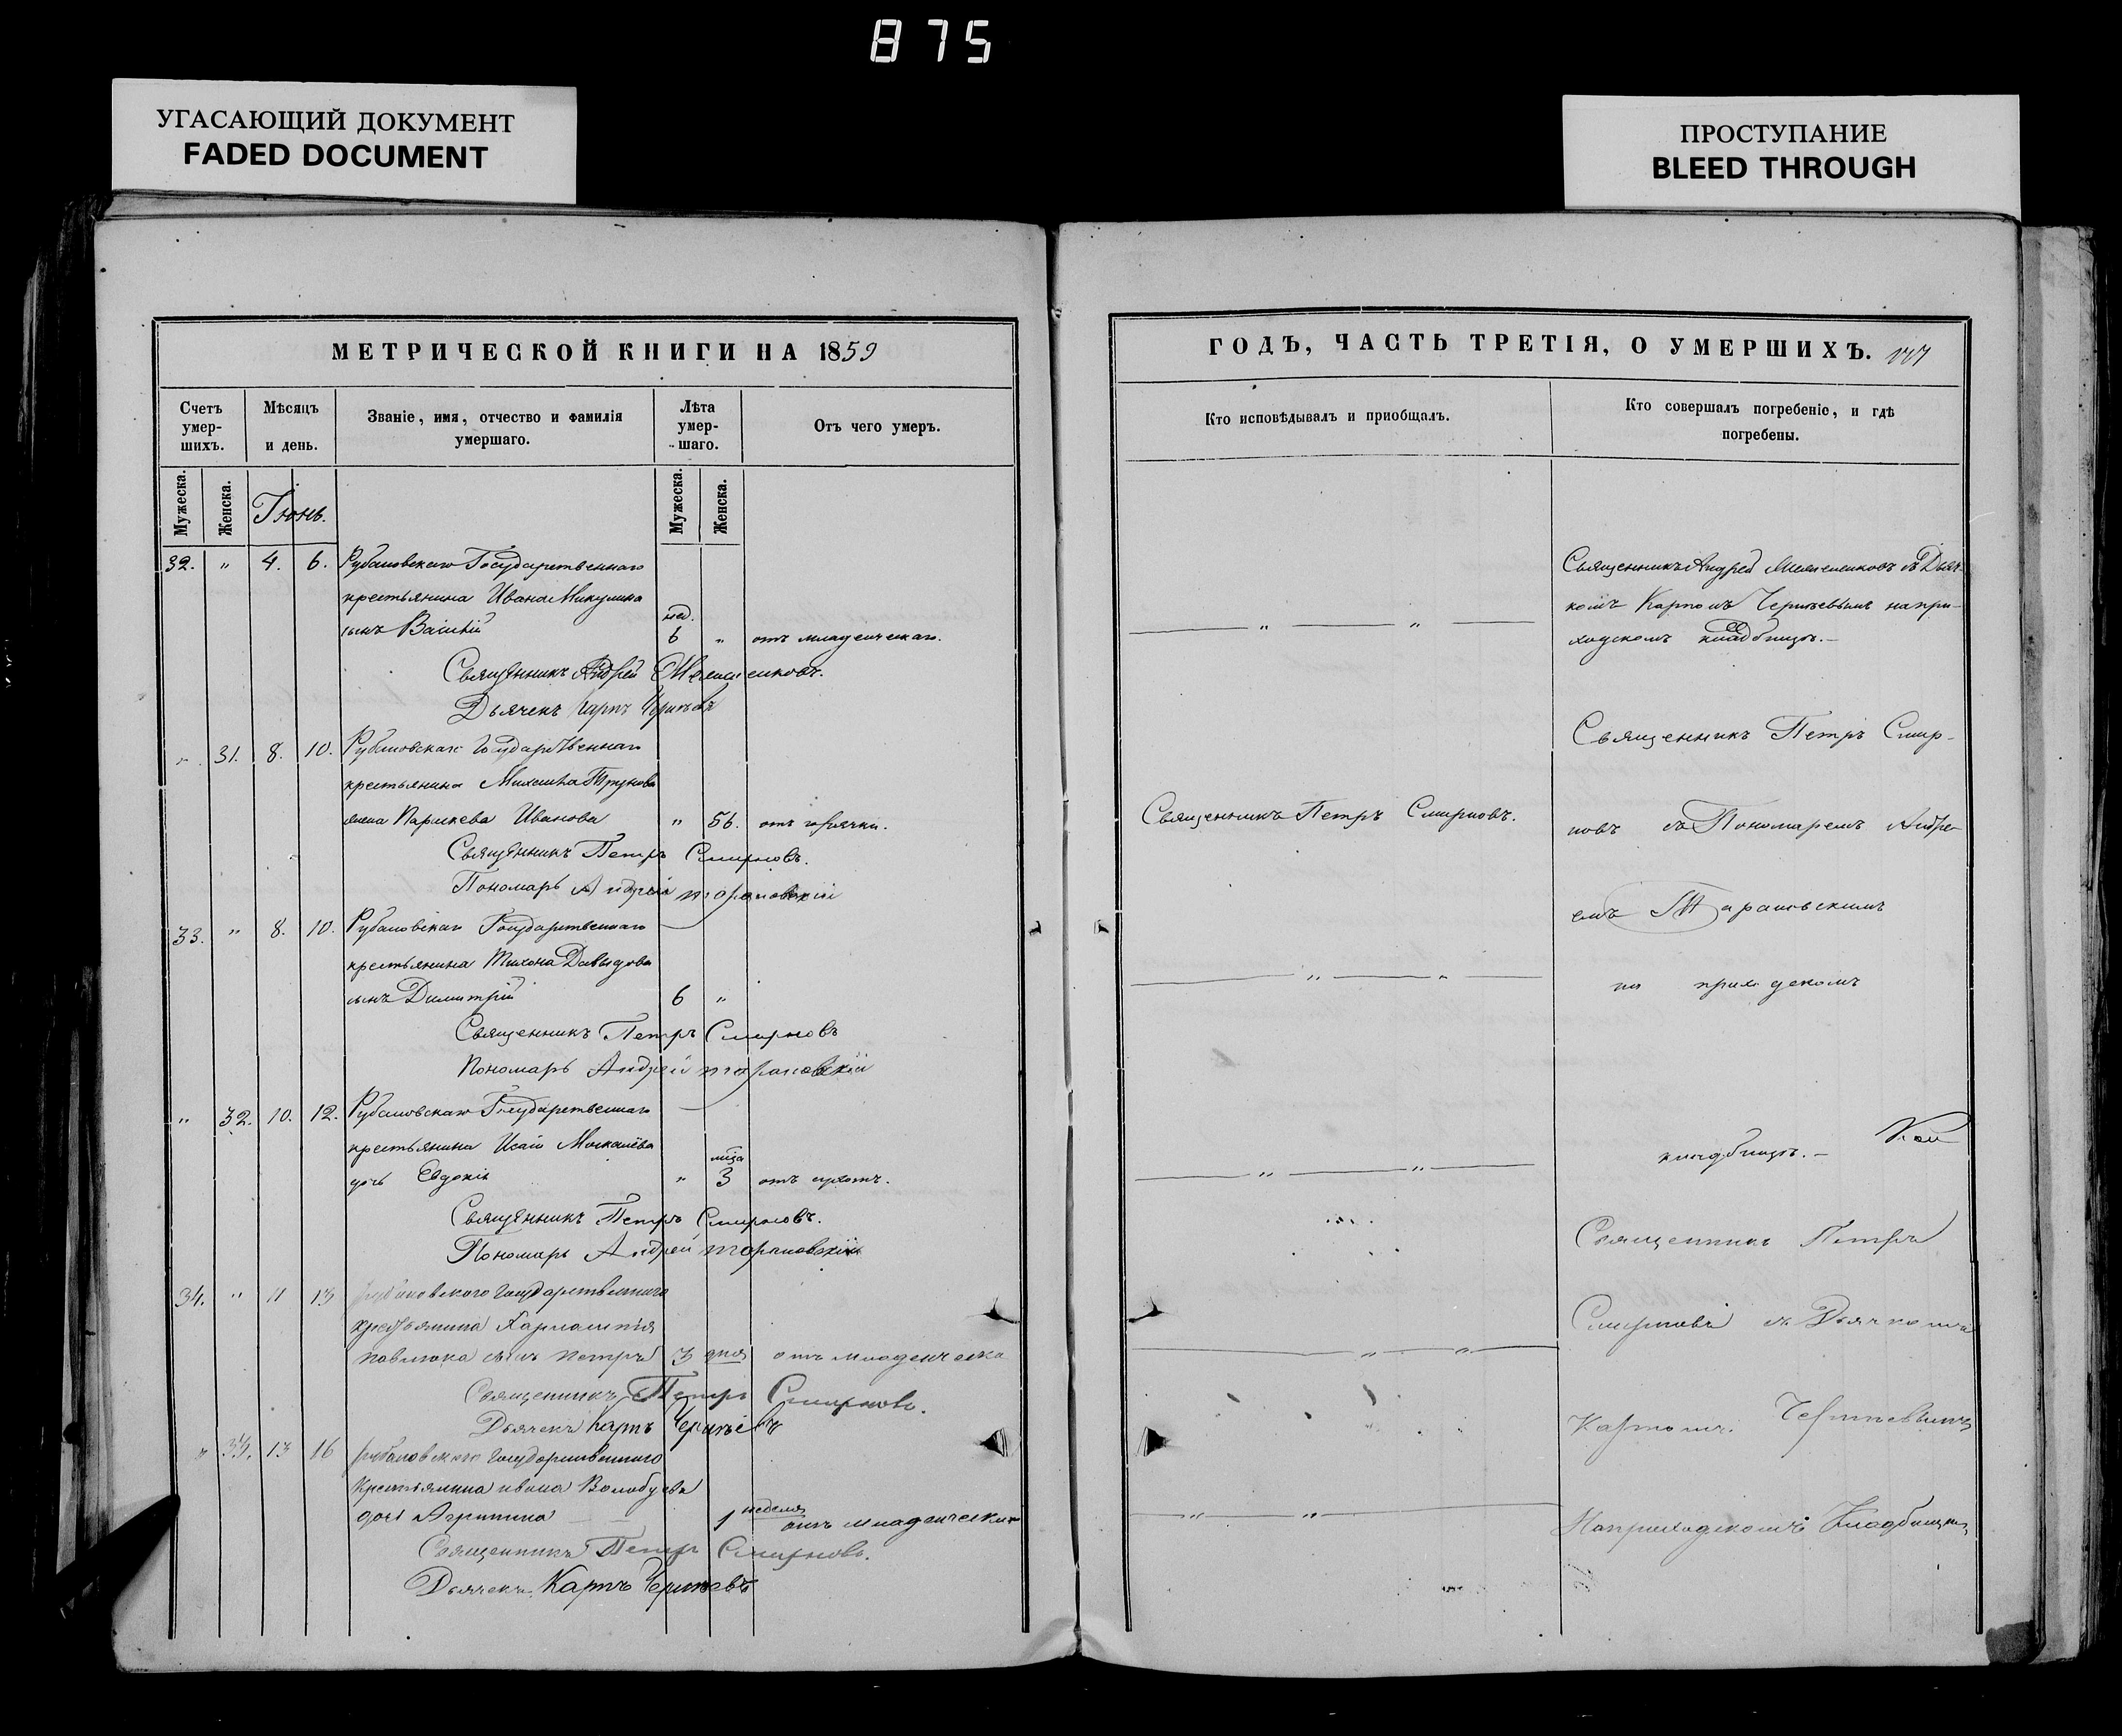 875
УГАСАЮЩИЙ ДОКУМЕНТ
FADED DOCUMENT
ПРОСТУПАНИЕ
BLEED THROUGH
МЕТРИЧЕСКОЙ КНИГИ НА 1859
Счетъ умер-шихъ.
Мѣсяцъ и день.
Званіе, имя, отчество и фамилія умершаго.
Лѣта умер-шаго.
Отъ чего умеръ.
Мужеска.
Женска.
Іюнь.
Мужеска.
Женска.
32. " 4. 6. Рубановскаго Государственнаго
крестьянина Ивана Микулина
сынъ нед.
6 " отъ младенческаго.
Священникъ Андрей
Дьячекъ Карпъ
" 31. 8. 10. Рубановскаго Государственнаго
крестьянина Михаила
жена Параскева Ивановa " 56. отъ горячки.
Священникъ Петръ Смирновъ.
Пономарь Андрей Тарановскій
33. " 8. 10. Рубановскаго Государственнаго
крестьянина Тихона Давыдова
сынъ Димитрій 6 "
Священникъ Петръ Смирновъ
Пономарь Андрей Тарановскій
" 32. 10. 12. Рубановскаго Государственнаго
крестьянина Исаіи Москалёва
дочь Евдокія " 3 отъ сухотъ.
Священникъ Петръ Смирновъ.
Пономарь Андрей Тарановскій
34. " 11 13 Рубановского Государственного
крестьянина
Павлюка сынъ Петръ 3 дня отъ младенческа
Священникъ Петръ Смирновъ.
Дьячекъ Карпъ
" 33. 13 16 Рубановского Государственного
Крестьянина Ивана Волобуева
дочь Агрипина 1 неделя отъ младенческаго
Священникъ Петръ Смирновъ.
Дьячекъ Карпъ
ГОДЪ, ЧАСТЬ ТРЕТІЯ, О УМЕРШИХЪ.
Кто исповѣдывалъ и приобщалъ.
Кто совершалъ погребеніе, и гдѣ погребены.
Священникъ Андрей съ Дьяч-
комъ Карпомъ на при-
ходскомъ кладбищѣ.
Священникъ Петръ Смир-
Священникъ Петръ Смирновъ.
новъ съ Пономаремъ Андре-
емъ Тарановскимъ
на приходскомъ
кладбищѣ.
Священникъ Петръ
Смирновъ съ Дьячкомъ
Карпомъ
На приходскомъ Кладбищѣ